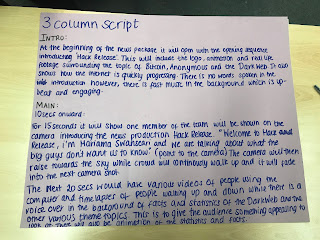 3 column script
INTRO:
At the beginning of the news package it will open with the opening sequence
introducing 'Hack Release'. This will include the logo, animation and real life
footage surrounding the topic of Bitcoin, Anonymous and the Dark Web. It also
shows how the internet is quickly progressing. There is no words spoken in the
introduction however, there is fast music in the background which is up-
beat and engaging.
MAIN:
10secs onward:
For 15 seconds it will show one member of the team will be shown on the
camera introducing the news production Hack Release. "Welcome to Hack and
Release, I'm Mariama Swahsean and we are talking about what the
big guys don't want us to know". (point to the camera) The camera will then
raise towards the sky while crowd will continously walk up and it will fade
into the next camera shot.
The next 20 secs would have various videos of people using the
computer and timelapses of people walking up and down while there is a
voice over in the background of facts and statistics of the Dark Web and the
other various theme topics. This is to give the audience something appealing to
look at. There will also be animation of the statistics and facts.